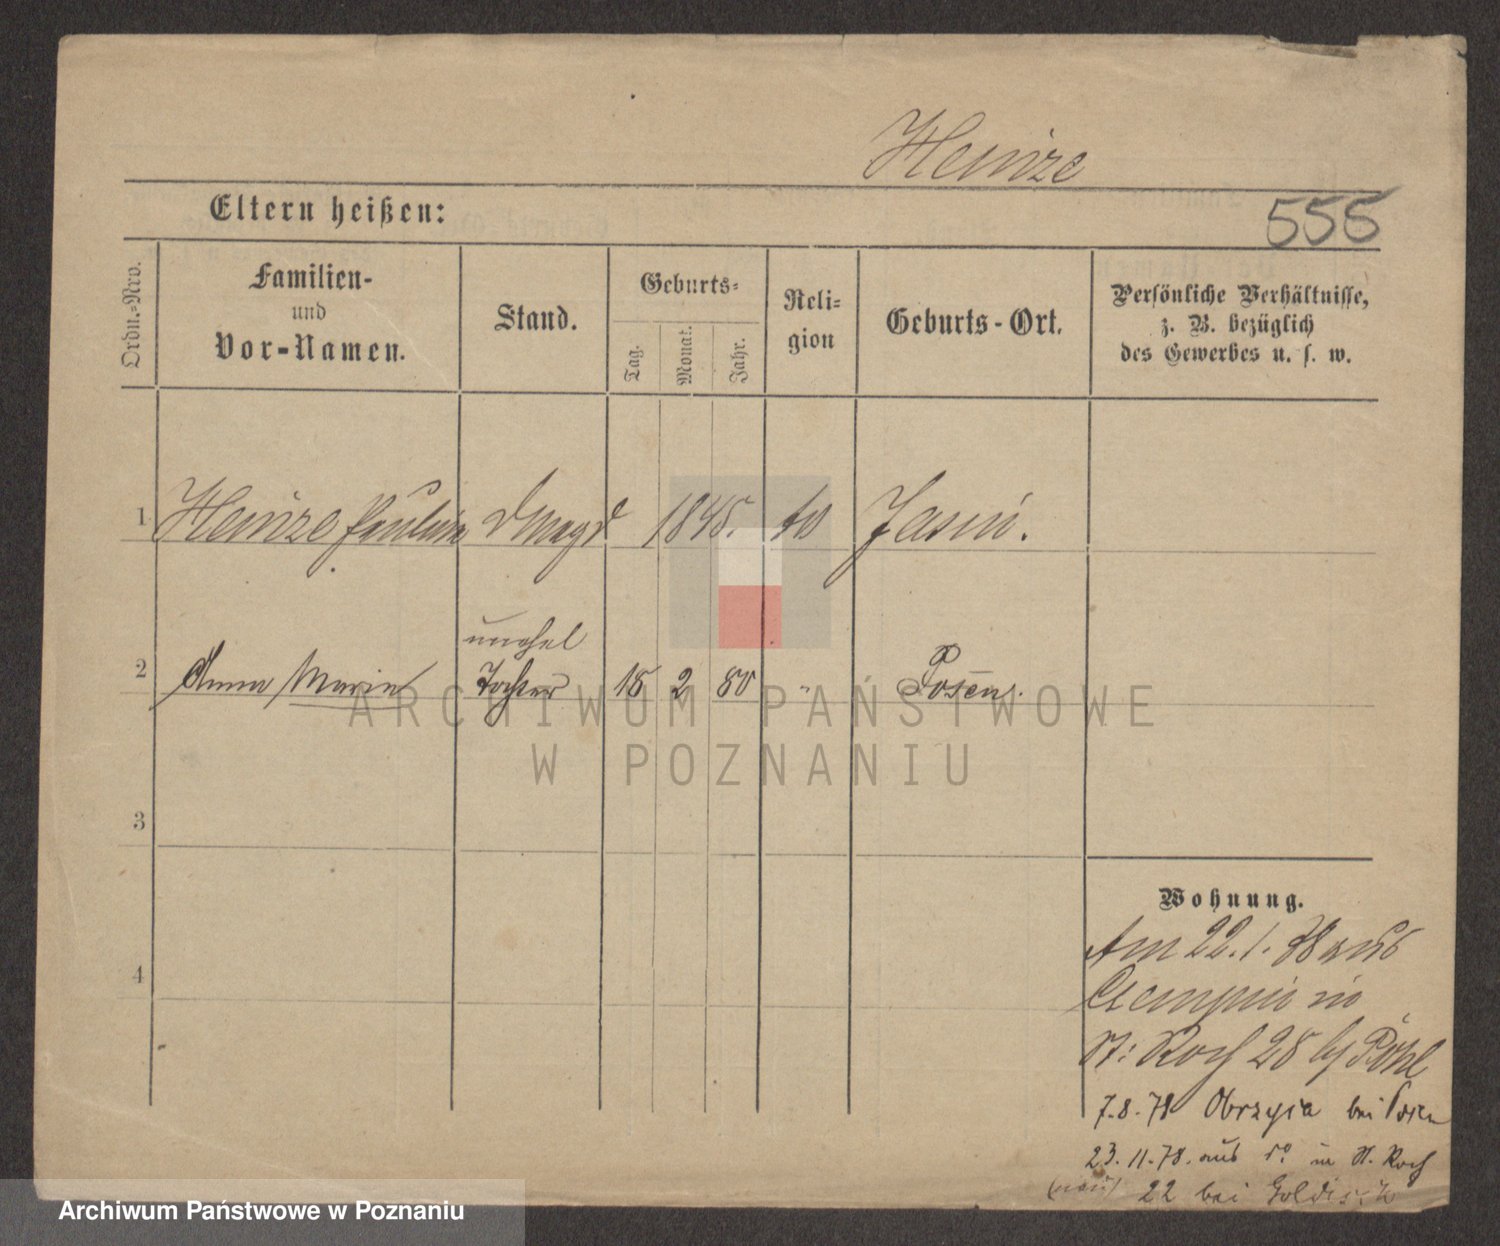 Heinze
555
Eltern heißen:
Ordn.-Nro.
Familien-
und
Vor-Namen.
Stand.
Geburts-
Tag.
Monat.
Jahr.
Reli-
gion
Geburts-Ort.
Persönliche Verhältnisse,
z. B. bezüglich
des Gewerbes u. s. w.
1 Heinze Pauline DMagd 1845. Jasin.
unehel
2 Anna Marie Tochter 15 2 80 " Posen.
ARCHIWUM PAŃSTWOWE
W POZNANIU
3
4
Wohnung.
Am 22.1.78 aus
Czempin in
St: Roch 28 b/ Pohl
7.8.78 Obrzyca bei Posen
23.11.78. aus do in St. Roch
22 bei
Archiwum Państwowe w Poznaniu